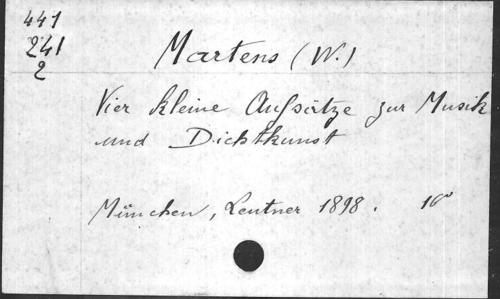 441
241
2
Martens (W.)
Vier kleine Aufsätze zur Musik
und Dichtkunst
München, Leutner 1898.